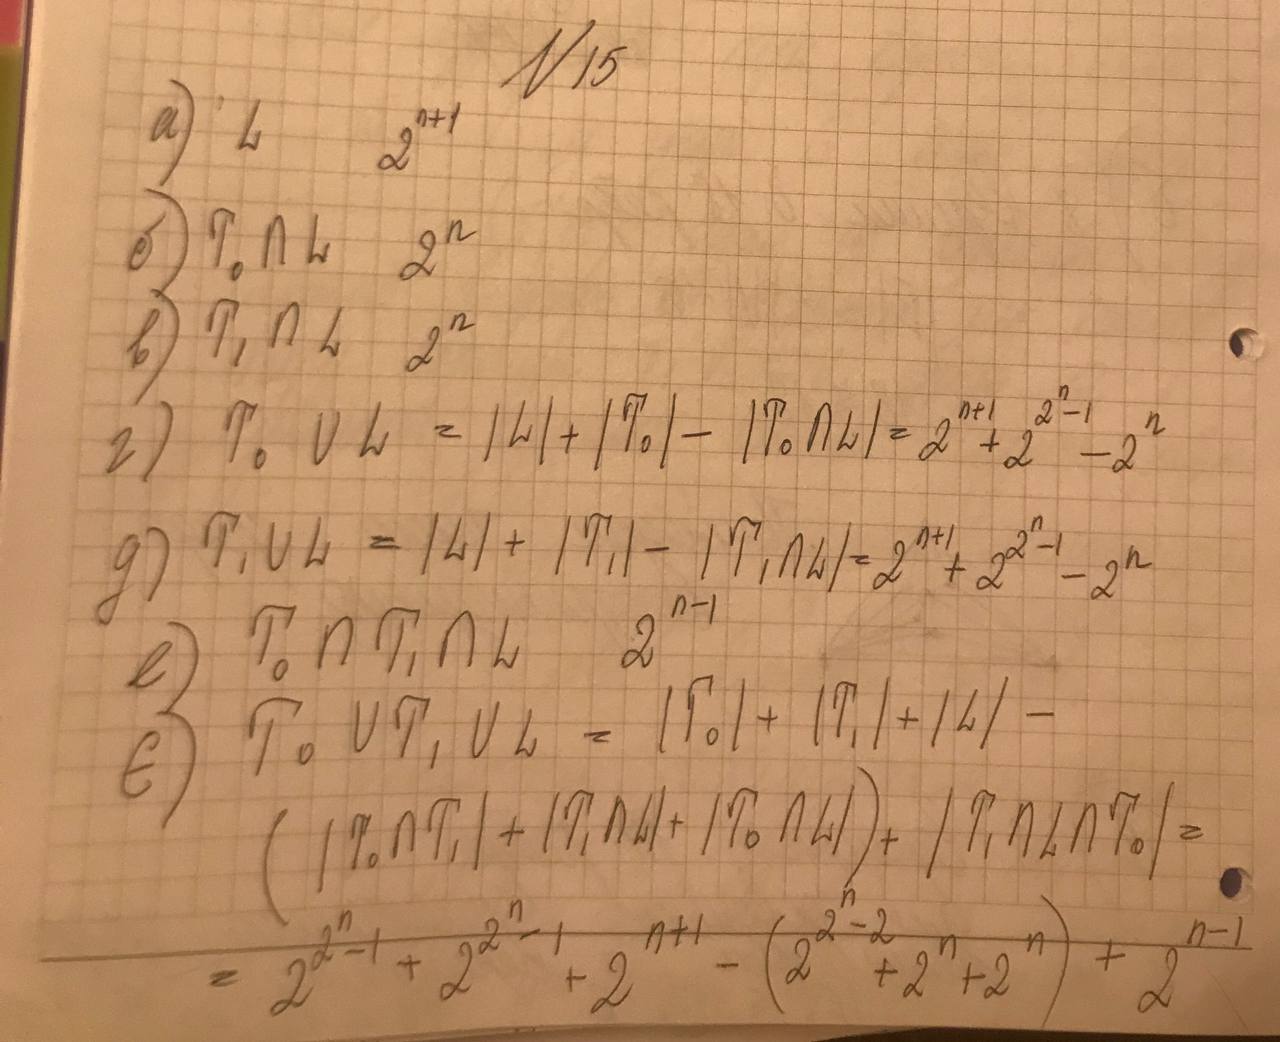 N15
а) L 2^{n+1}
б) T₀ ∩ L 2^n
в) T₁ ∩ L 2^n
г) T₀ ∪ L = |L| + |T₀| − |T₀ ∩ L| = 2^{n+1} + 2^{2^n−1} − 2^n
д) T₁ ∪ L = |L| + |T₁| − |T₁ ∩ L| = 2^{n+1} + 2^{2^n−1} − 2^n
е) T₀ ∩ T₁ ∩ L 2^{n−1}
є) T₀ ∪ T₁ ∪ L = |T₀| + |T₁| + |L| −
(|T₀ ∩ T₁| + |T₁ ∩ L| + |T₀ ∩ L|) + |T₁ ∩ L ∩ T₀| =
= 2^{2^n−1} + 2^{2^n−1} + 2^{n+1} − (2^{2^n−2} + 2^n + 2^n) + 2^{n−1}